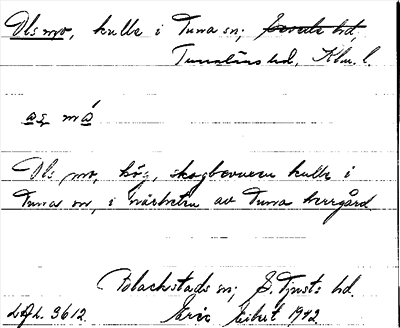 Ols mo, kulle i Tuna sn; Sevede hd,
Tunaläns hd, Klm. l.
as må
Ols mo, hög, skogbevuxen kulle i
Tuna sn, i närheten av Tuna herrgård
Blackstads sn; S. Tjusts hd.
3612 Eric Elist 1942